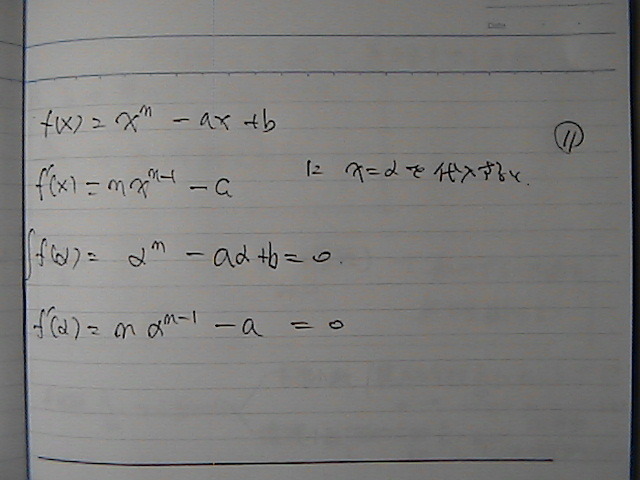 Date
⑪
f(x) = x^n - ax + b
f'(x) = nx^{n-1} - a に x=α を代入すると.
f(α) = α^n - aα + b = 0.
f'(α) = nα^{n-1} - a = 0